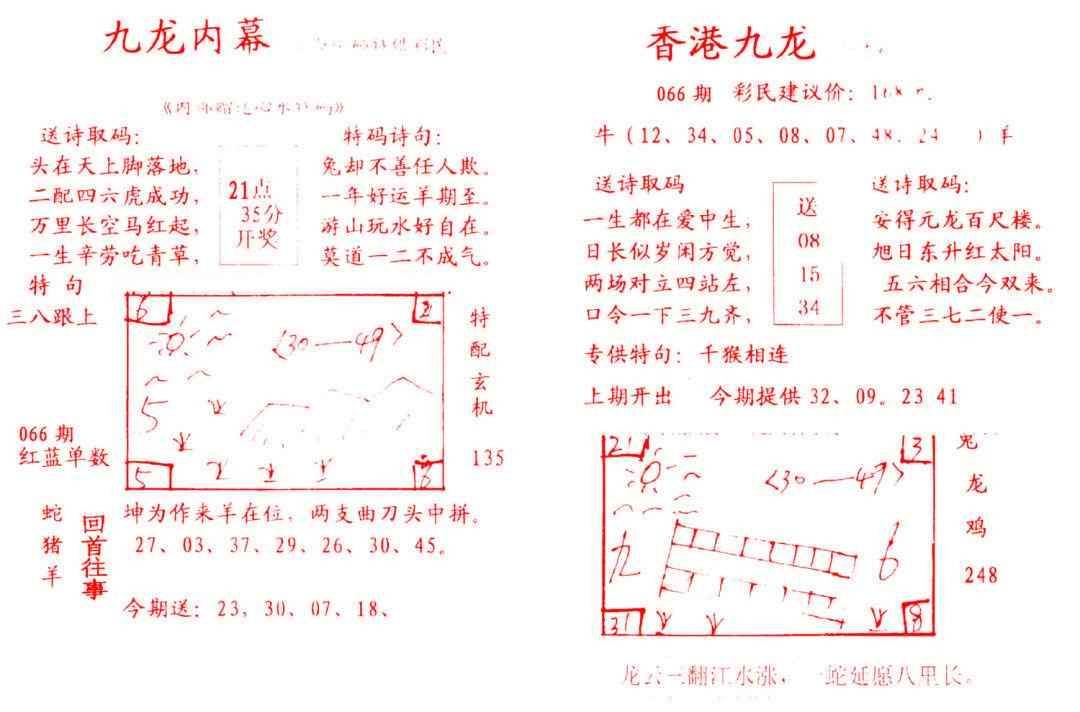 九龙内幕
送诗取码：
头在天上脚落地，
二配四六虎成功，
万里长空马红起，
一生辛劳吃青草，
21点
35分
开奖
特码诗句：
兔却不善任人欺。
一年好运羊期至。
游山玩水好自在。
莫道一二不成气。
特句
三八跟上
066期
红蓝单数
6
2
〈30—49〉
5
5
8
特配玄机
135
蛇
猪
羊
回首往事
坤为作来羊在位，两支曲刀头中拼。
27、03、37、29、26、30、45。
今期送：23，30、07、18、
香港九龙
066期 彩民建议价：
牛（12、34、05、08、07、48、24 ）羊
送诗取码
一生都在爱中生，
日长似岁闲方觉，
两场对立四站左，
口令一下三九齐，
送
08
15
34
送诗取码：
安得元龙百尺楼。
旭日东升红太阳。
五六相合今双来。
不管三七二使一。
专供特句：千猴相连
上期开出 今期提供32、09。23 41
21
3
〈30—49〉
九
6
31
8
兔
龙
鸡
248
龙云三翻江水涨，一蛇延愿八里长。